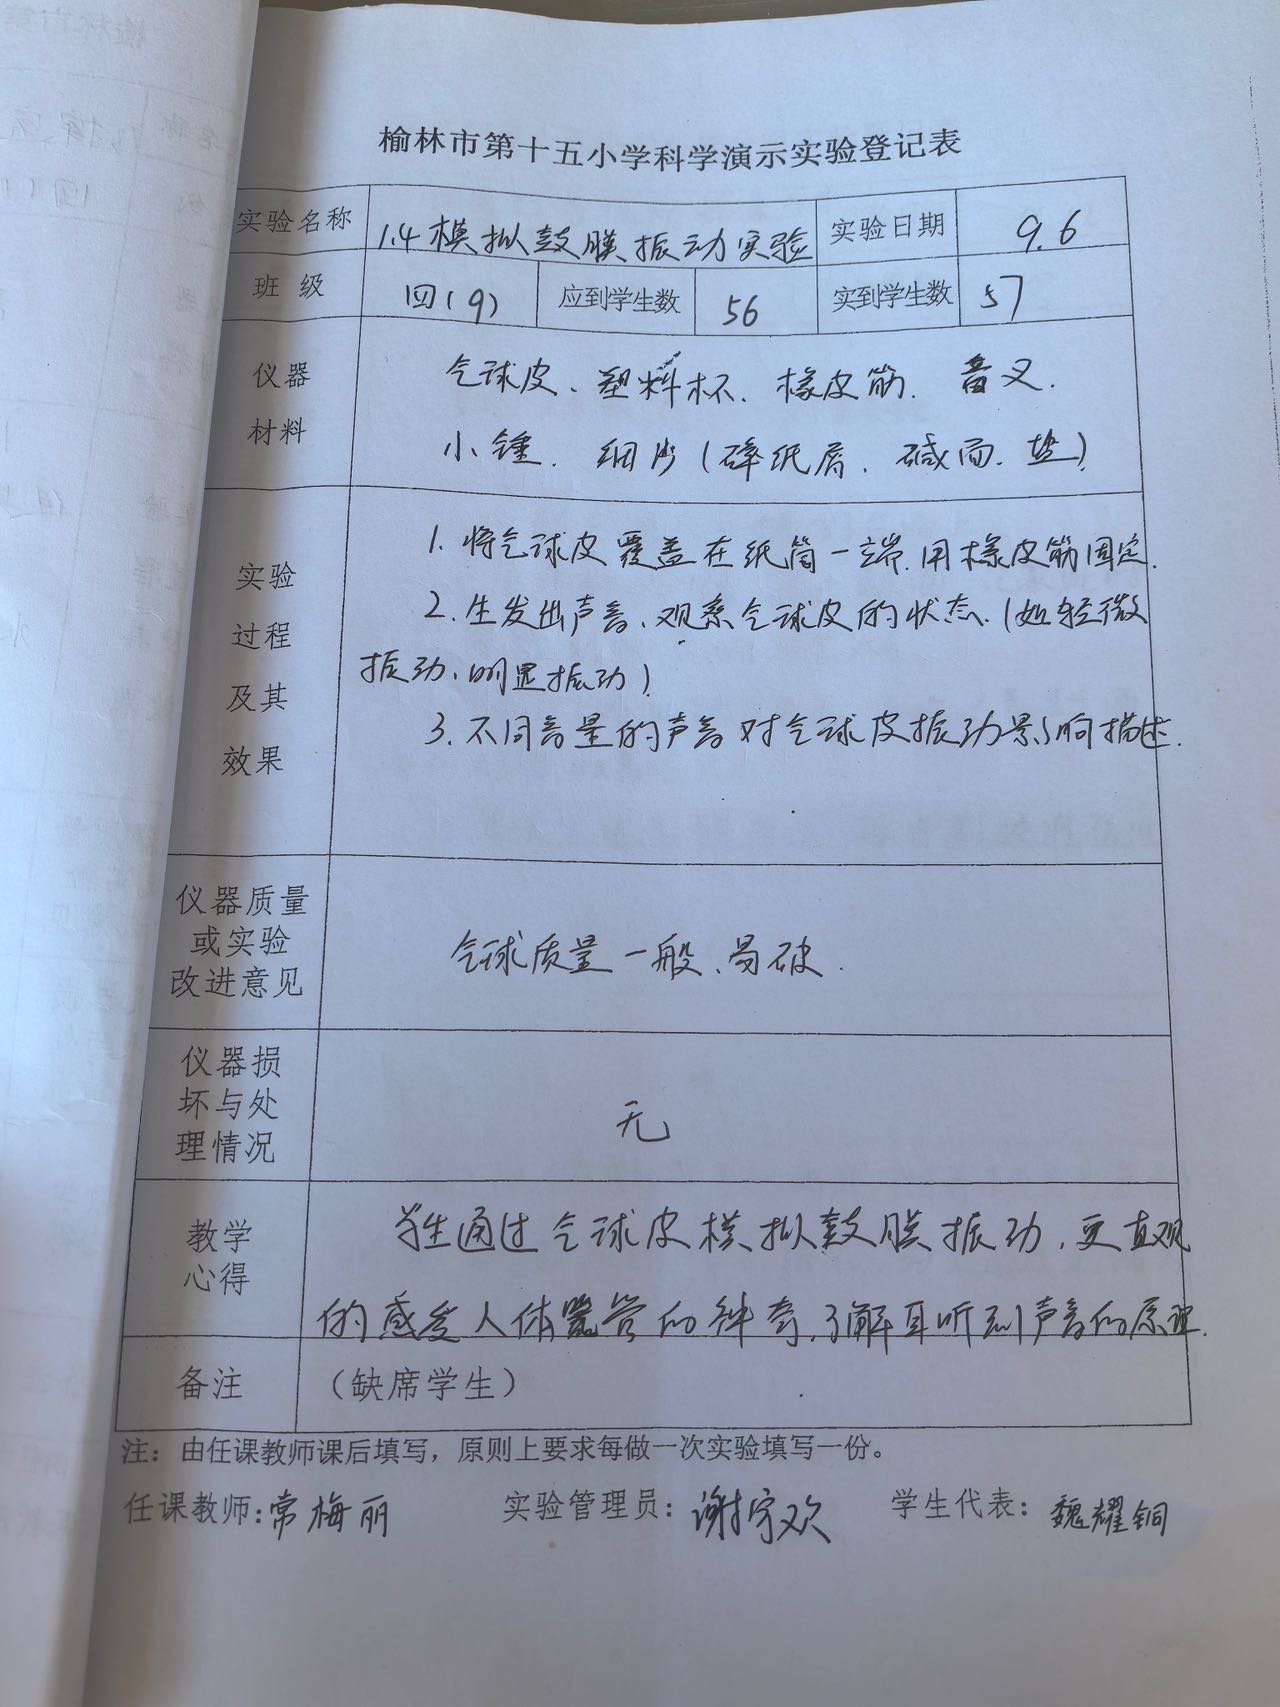 榆林市第十五小学科学演示实验登记表
实验名称 1.4模拟鼓膜振动实验 实验日期 9.6
班级 四(9) 应到学生数 56 实到学生数 57
仪器
材料
气球皮、塑料杯、橡皮筋、音叉、
小锤、细沙(碎纸屑、碱面、盐)
实验
过程
及其
效果
1.将气球皮覆盖在纸筒一端,用橡皮筋固定.
2.生发出声音、观察气球皮的状态.(如轻微
振动、明显振动)
3.不同音量的声音对气球皮振动影响描述.
仪器质量
或实验
改进意见
气球质量一般、易破.
仪器损
坏与处
理情况
无
教学
心得
学生通过气球皮模拟鼓膜振动,更直观
的感受人体器官的神奇,了解耳听到声音的原理.
备注 (缺席学生)
注：由任课教师课后填写，原则上要求每做一次实验填写一份。
任课教师:常梅丽 实验管理员：谢宇欢 学生代表：魏耀铜